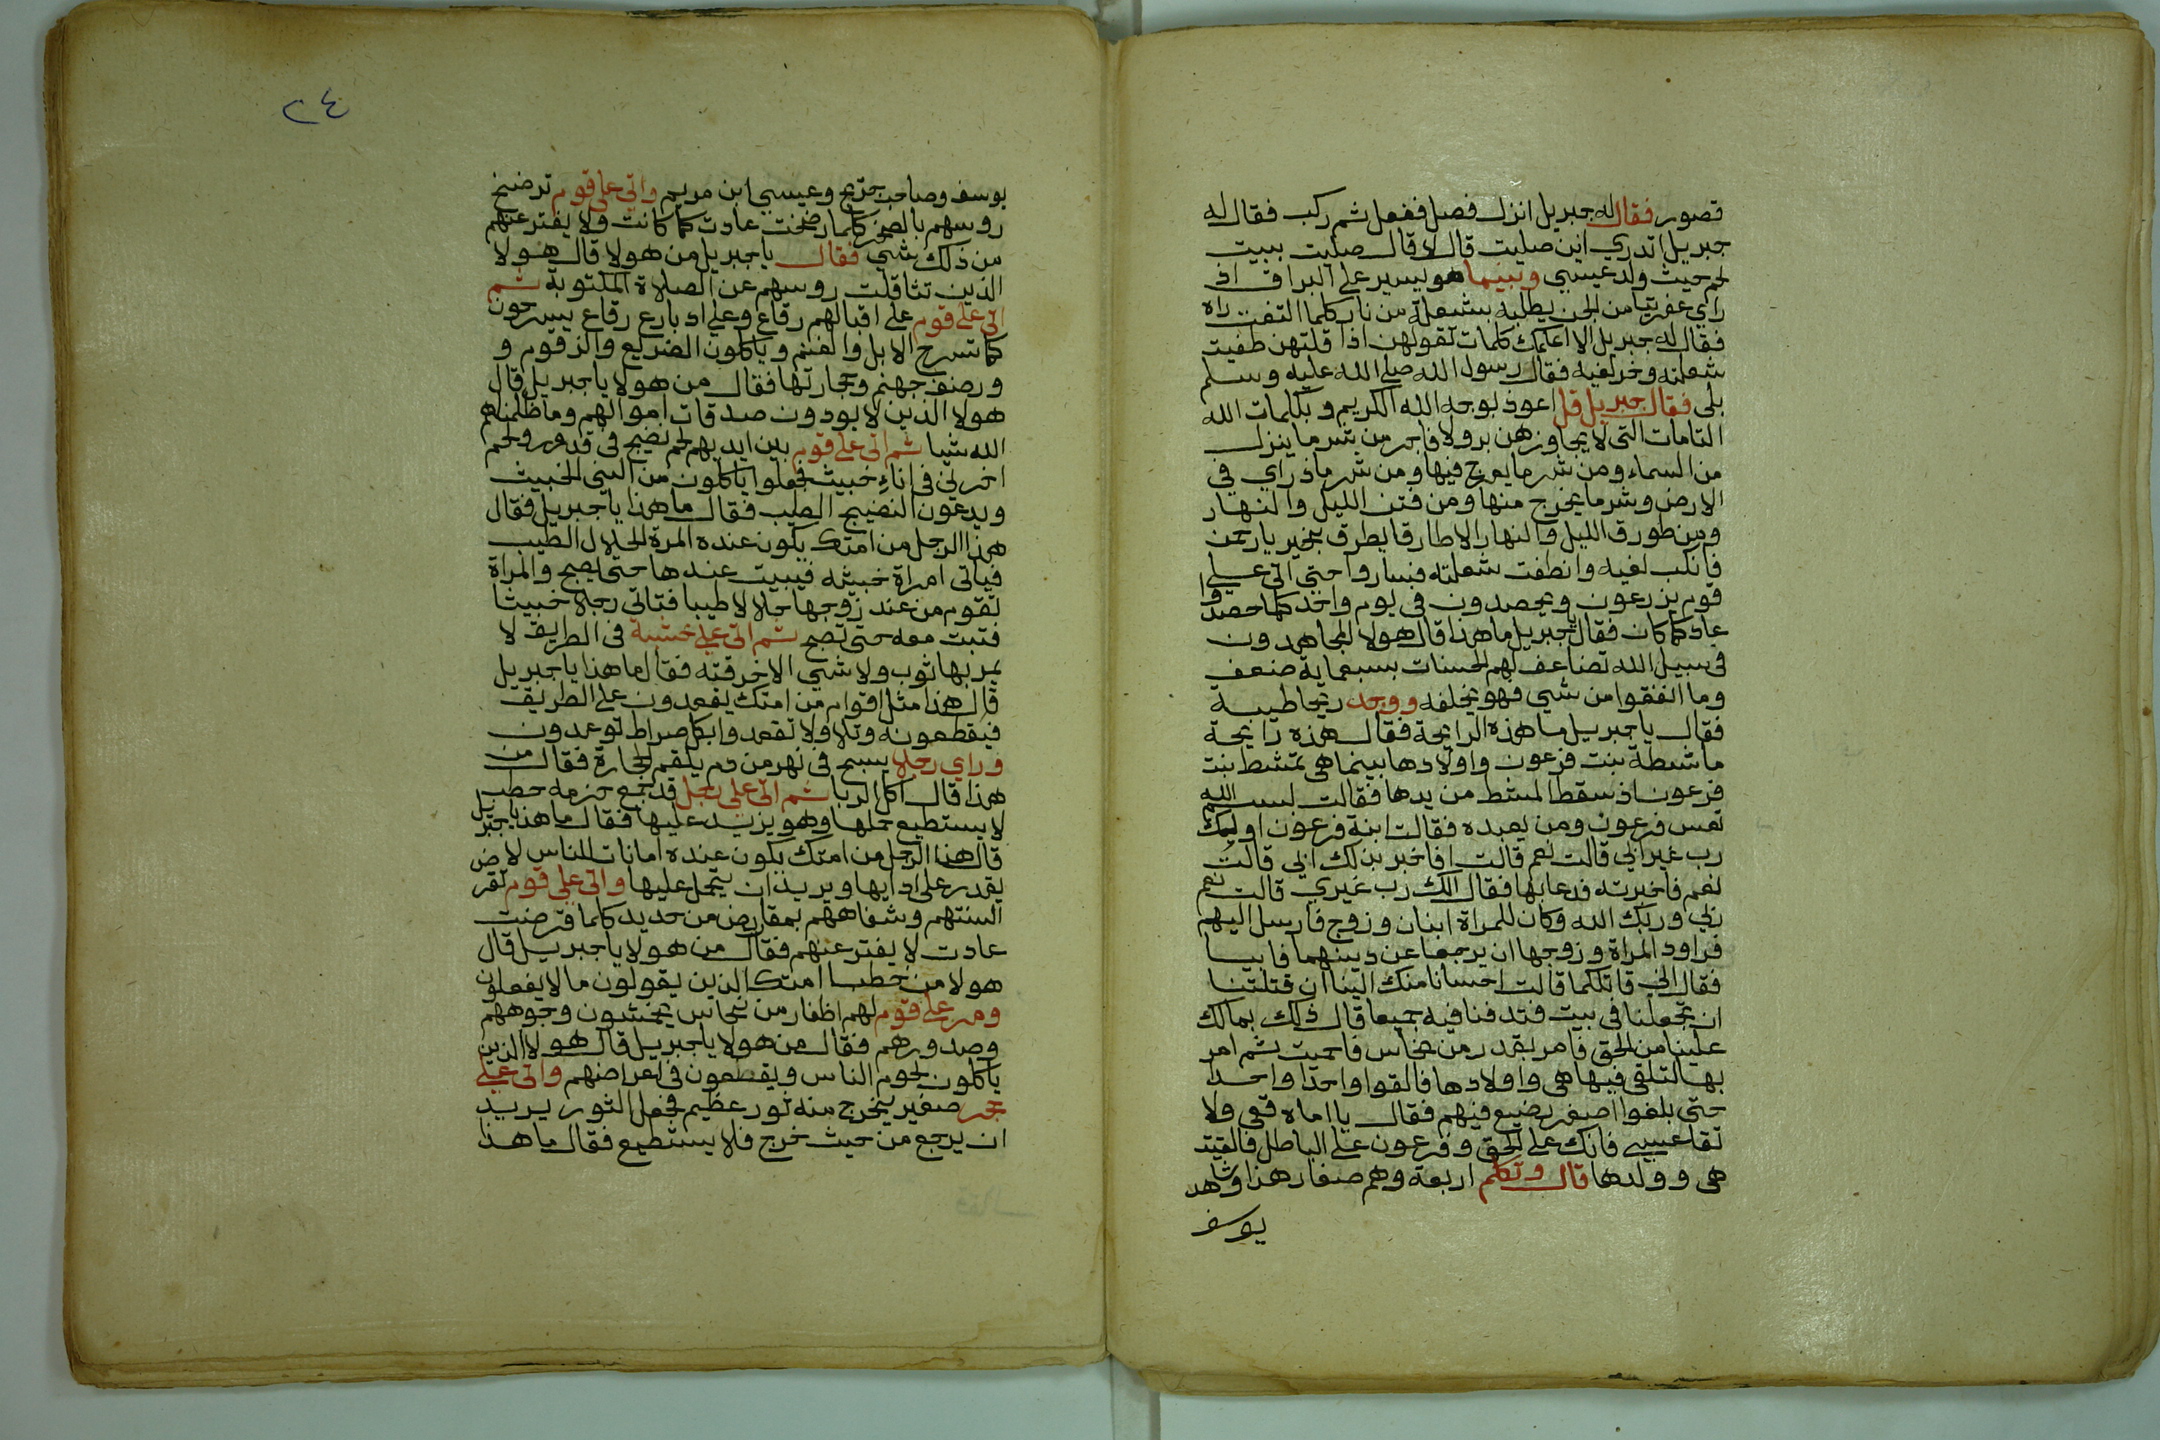 قصور فقال له جبريل انزل فصل ففعل ثم ركب فقال له
جبريل اتدري اين صليت قال لا قال صليت ببيت
لحم حيث ولد عيسي وبينما هو يسير علي البراق اذ
راي عفريتا من الجن يطلبه بشعلة من نار كلما التفت راه
فقال له جبريل الا اعلمك كلمات تقولهن اذا قلتهن طفيت
شعلته وخر لفيه فقال رسول الله صلي الله عليه وسلم
بلي فقال جبريل قل اعوذ بوجه الله الكريم وبكلمات الله
التامات التي لا يجاوزهن بر ولا فاجر من شر ما ينزل
من السماء ومن شر ما يعرج فيها ومن شر ما ذراي في
الارض وشر ما يخرج منها ومن فتن الليل والنهار
ومن طورق الليل والنهار الا طارقا يطرق بخير يا رحمن
فانكب لفيه وانطفت شعلته فساروا حتي اتي علي
قوم يزرعون ويحصدون في يوم واحد كلما حصدوا
عاد كما كان فقال يا جبريل ما هذا قال هولا المجاهدون
في سبيل الله تضاعف لهم الحسنات بسبعماية ضعف
وما انفقوا من شي فهو يخلفه ووجد ريحا طيبة
فقال يا جبريل ما هذه الرايحة فقال هذه رايحة
ماشطة بنت فرعون واولادها بينما هي تمشط بنت
فرعون اذ سقط المشط من يدها فقالت بسم الله
تعس فرعون ومن يعبده فقالت ابنة فرعون اوليك
رب غير ابي قالت نعم قالت افاخبر بذلك ابي قالت
نعم فاخبرته فدعا بها فقال الك رب غيري قالت نعم
ربي وربك الله وكان للمراة ابنان وزوج فارسل اليهم
فراود المراة وزوجها ان يرجعا عن دينهما فابيا
فقال اني قاتلكما قالت احسانا منك الينا ان قتلتنا
ان تجعلنا في بيت فتدفنا فيه جميعا قال ذلك بمالك
علينا من الحق فامر بقدر من نحاس فاحميت ثم امر
بها لتلقي فيها هي واولادها فالقوا واحدا واحدا
حتي بلغوا اصغر رضيع فيهم فقال يا اماه قعي ولا
تقاعسي فانك علي الحق وفرعون علي الباطل فالقيت
هي وولدها قال وتكلم اربعة وهم صغار هذا وشاهد
يوسف
٢٤
يوسف وصاحب جريج وعيسي ابن مريم واتي علي قوم ترضخ
روسهم بالصخر كلما رضخت عادت كما كانت ولا يفتر عنهم
من ذلك شي فقال يا جبريل من هولا قال هولا
الذين تثاقلت روسهم عن الصلاة المكتوبة ثم
اتي علي قوم علي اقبالهم رقاع وعلي ادبارع رقاع يسرحون
كما تسرح الابل والغنم وياكلون الضريع والزقوم و
ورضف جهنم وحجارتها فقال من هولا يا جبريل قال
هولا الذين لا يودون صدقات اموالهم وما ظلمهم
الله شيا ثم اتي علي قوم بين ايديهم لحم نضيج في قدور ولحم
اخر ني في اناء خبيث فجعلوا ياكلون من الني الخبيث
ويدعون النضيج الطيب فقال ما هذا يا جبريل فقال
هذا الرجل من امتك يكون عنده المرة الحلال الطيب
فياتي امراة خبيثه فيبيت عندها حتي يصبح والمراة
تقوم من عند زوجها حلالا طيبا فتاتي رجلا خبيثا
فتبت معه حتي تصبح ثم اتي علي خشبة في الطريق لا
يمر بها ثوب ولا شي الا خرقته فقال ما هذا يا جبريل
قال هذا مثل اقوام من امتك يقعدون علي الطريق
فيقطعونه وتلا ولا تقعدوا بكل صراط توعدون
وراي رجلا يسبح في نهر من دم يلقم الحجارة فقال من
هذا قال اكل الربا ثم اتي علي رجل قد جمع حزمه حطب
لا يستطيع حملها وهو يزيد عليها فقال ما هذا يا جبريل
قال هذا الرجل من امتك يكون عنده امانات للناس لا
يقدر علي ادايها ويريد ان يتحمل عليها واتي علي قوم تقرض
السنتهم وشفاههم بمقارض من حديد كلما قرضت
عادت لا يفتر عنهم فقال من هولا يا جبريل قال
هولا من خطبا امتك الذين يقولون ما لا يفعلون
ومر علي قوم لهم اظفار من نحاس يخمشون وجوههم
وصدورهم فقال من هولا يا جبريل قال هولا الذين
ياكلون لحوم الناس ويقطعون في اعراضهم واتي علي
جحر صغير يخرج منه ثور عظيم فجعل الثور يريد
ان يرجع من حيث خرج فلا يستطيع فقال ما هذا